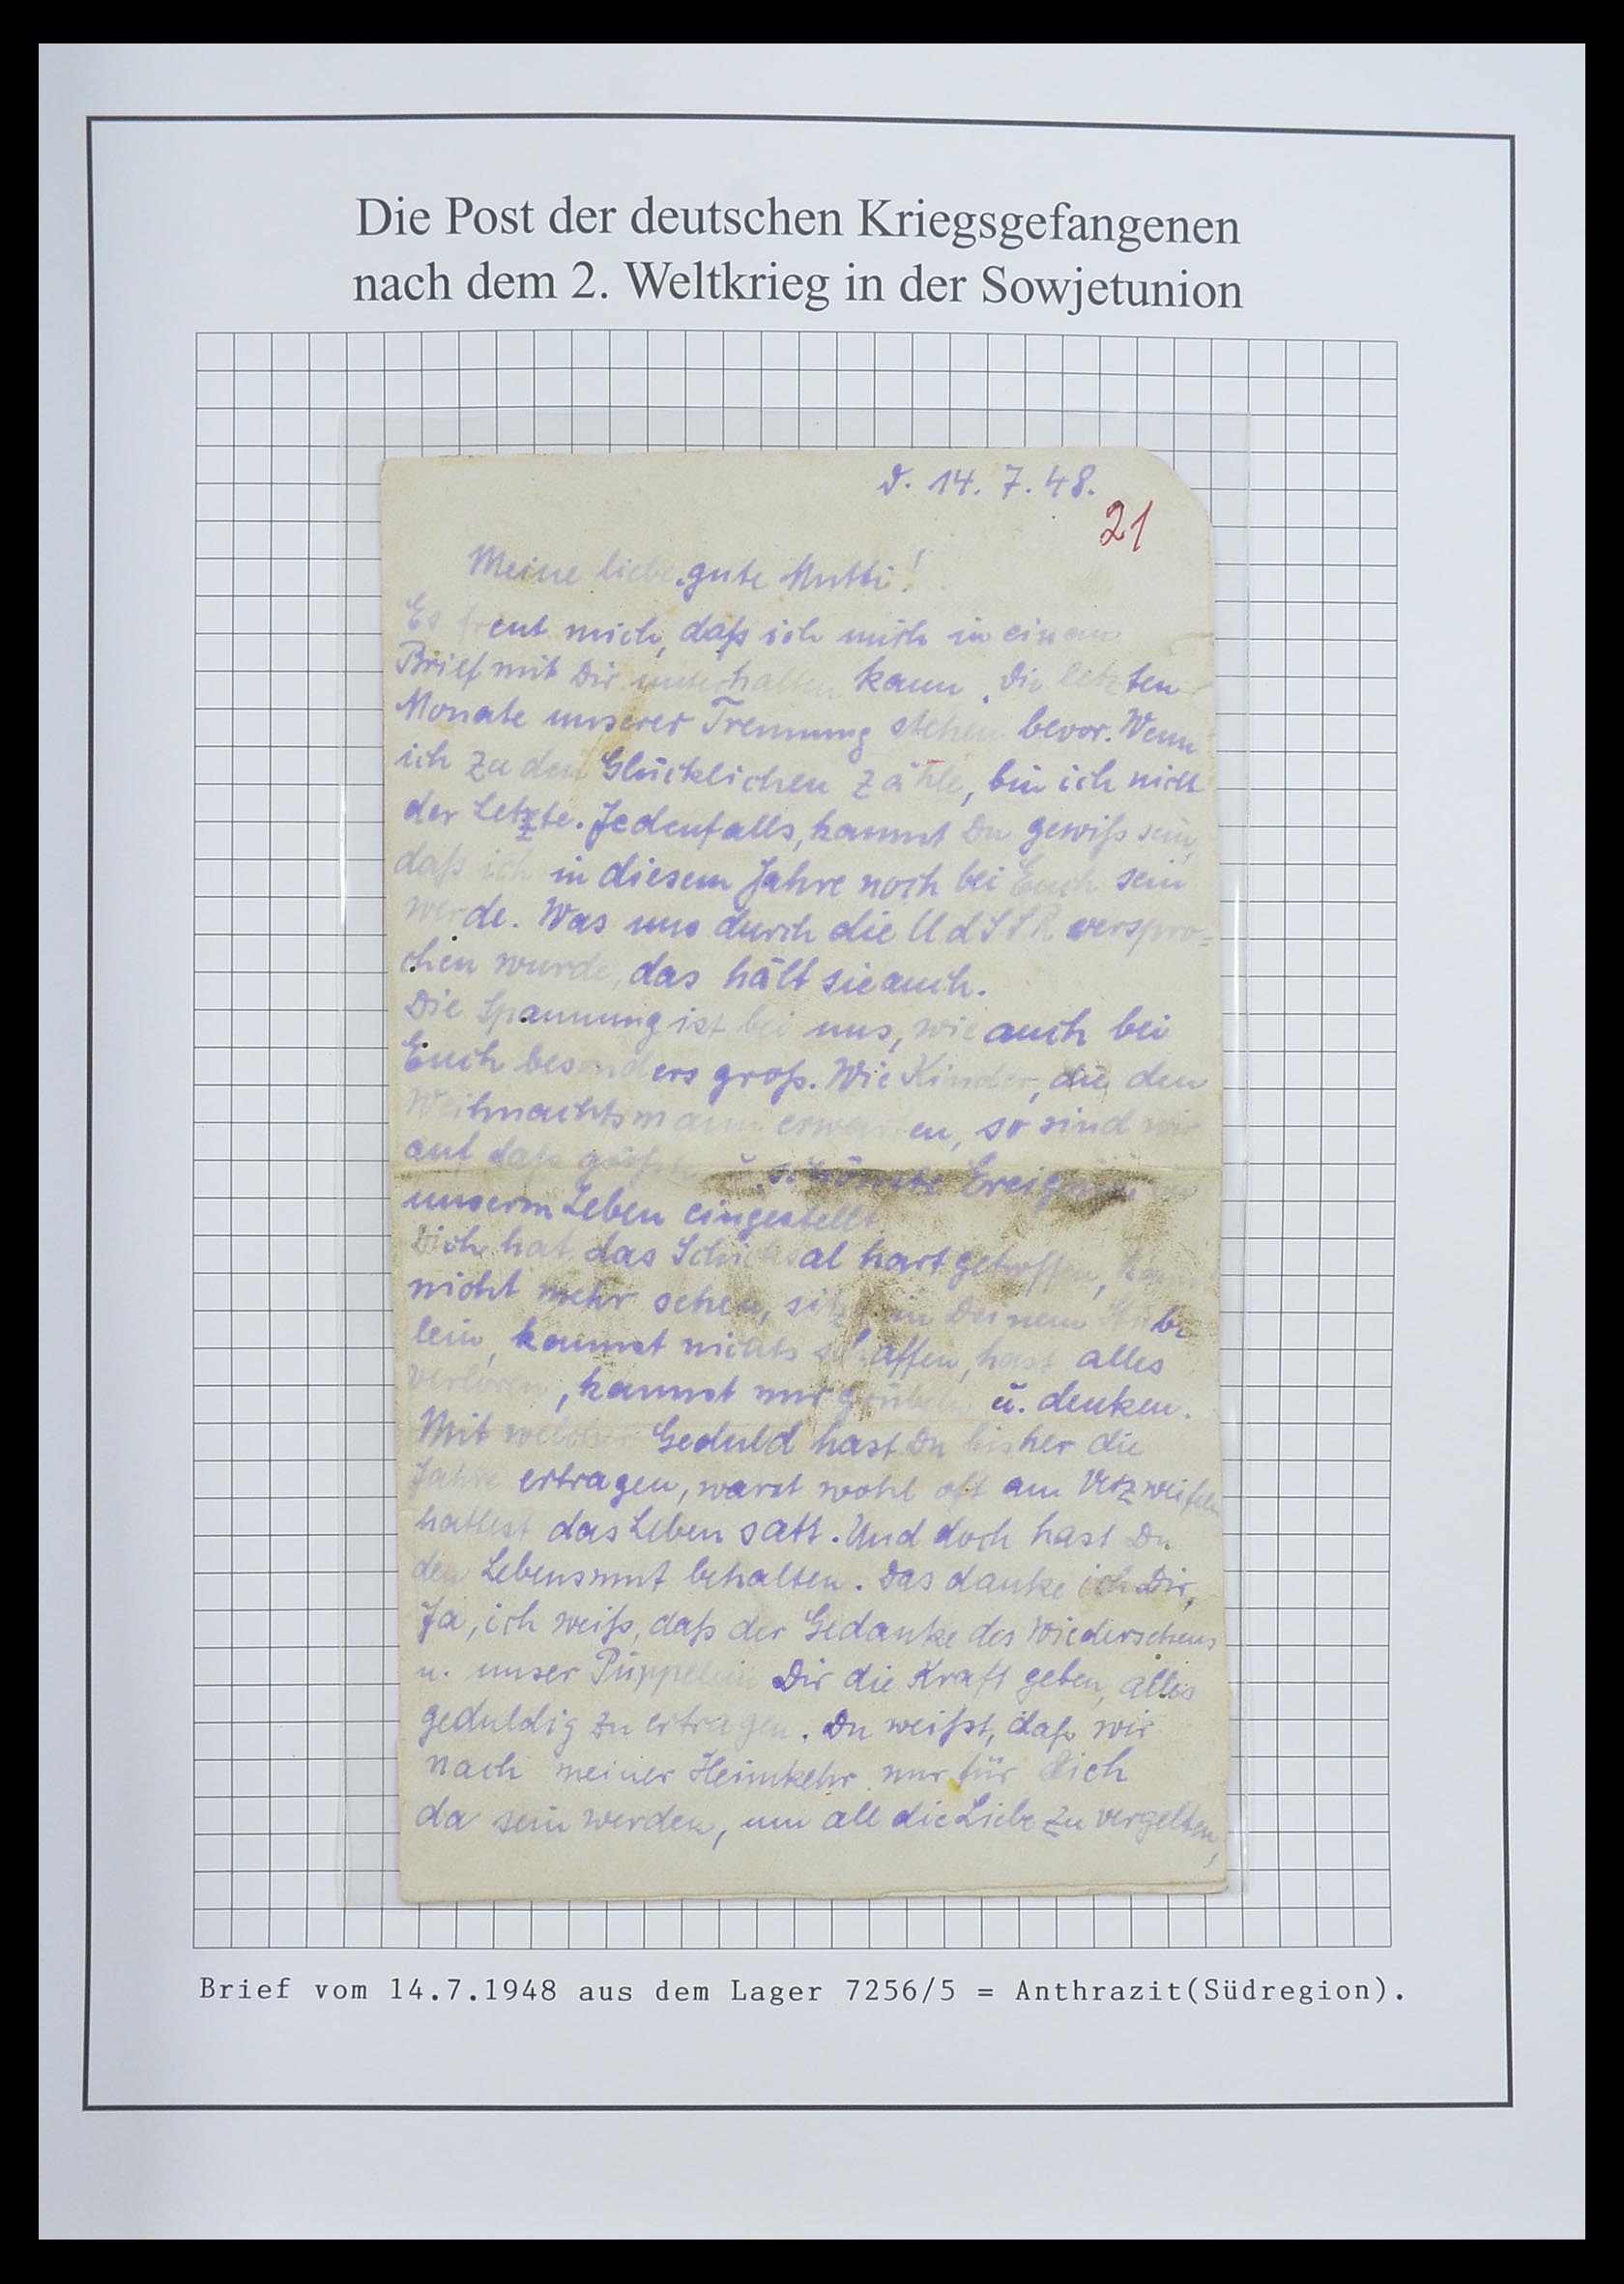 Die Post der deutschen Kriegsgefangenen
nach dem 2. Weltkrieg in der Sowjetunion
d. 14. 7. 48.
21
Meine liebe, gute Mutti!
Es freut mich, daß ich mich in einem
Brief mit Dir unterhalten kann. Die letzten
Monate unserer Trennung stehen bevor. Wenn
ich zu den Glücklichen zähle, bin ich nicht
der Letzte. Jedenfalls, kannst Du gewiß sein,
daß ich in diesem Jahre noch bei Euch sein
werde. Was uns durch die UdSSR verspro=
chen wurde, das hält sie auch.
Die Spannung ist bei uns, wie auch bei
Euch besonders groß. Wie Kinder, die den
Weihnachtsmann erwarten, so sind wir
auf daß größte u. schönste Ereignis
unserm Leben eingestellt.
Dich hat das Schicksal hart getroffen,
nicht mehr sehen, sitzt in Deinem Stüb
lein, kannst nichts schaffen, hast alles
verloren, kannst nur grübeln u. denken.
Mit welcher Geduld hast Du bisher die
Jahre ertragen, warst wohl oft am Verzweifeln
hattest das Leben satt. Und doch hast Du
den Lebensmut behalten. Das danke ich Dir,
Ja, ich weiß, daß der Gedanke des Wiedersehens
u. unser Püppelein Dir die Kraft geben, alles
geduldig zu ertragen. Du weißt, daß wir
nach meiner Heimkehr nur für Dich
da sein werden, um all die Liebe zu vergelten,
Brief vom 14.7.1948 aus dem Lager 7256/5 = Anthrazit(Südregion).